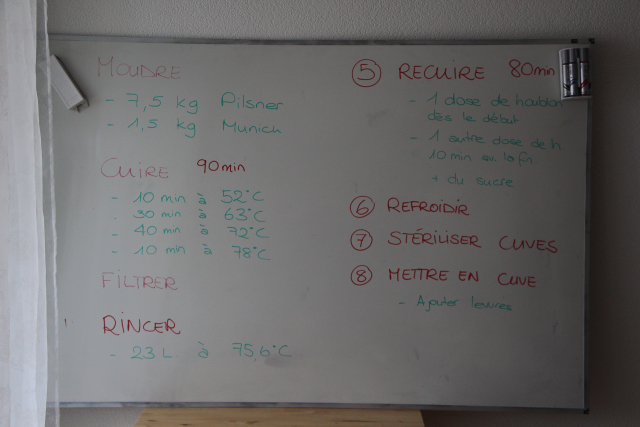 MOUDRE
- 7,5 kg Pilsner
- 1,5 kg Munich
CUIRE 90min
- 10 min à 52°C
- 30 min à 63°C
- 40 min à 72°C
- 10 min à 78°C
FILTRER
RINCER
- 23 L à 75,6°C
5 RECUIRE 80min
- 1 dose de houblon
dès le début
- 1 autre dose de h.
10 min av. la fin
+ du sucre
6 REFROIDIR
7 STÉRILISER CUVES
8 METTRE EN CUVE
- Ajouter levures